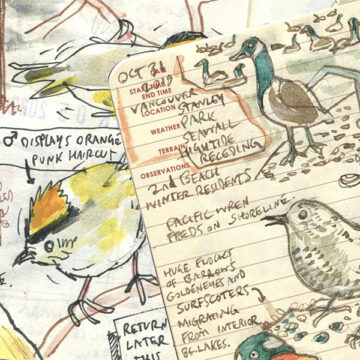 ♂ DISPLAYS ORANGE
PUNK HAIRCUT
RETURN
THIS
OCT 31
2019
START TIME
END TIME
VANCOUVER
LOCATION
STANLEY
PARK
WEATHER
SEAWALL
TERRAIN
HIGH TIDE
RECEDING
OBSERVATIONS
2ND BEACH
WINTER RESIDENTS
PACIFIC WREN
FEEDS ON SHORELINE.
HUGE FLOCKS
OF BARROWS
GOLDENEYES AND
SURFSCOTERS
MIGRATING
FROM INTERIOR
BC LAKES.